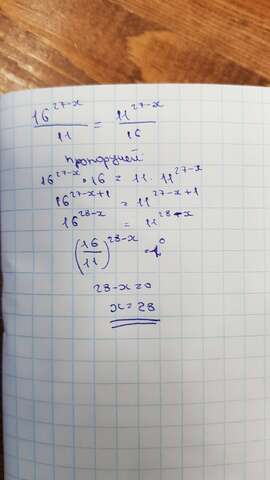 16^{27-x}/11 = 11^{27-x}/16
пропорцией
16^{27-x} · 16 = 11 · 11^{27-x}
16^{27-x+1} = 11^{27-x+1}
16^{28-x} = 11^{28-x}
(16/11)^{28-x} =
28-x=0
x=28